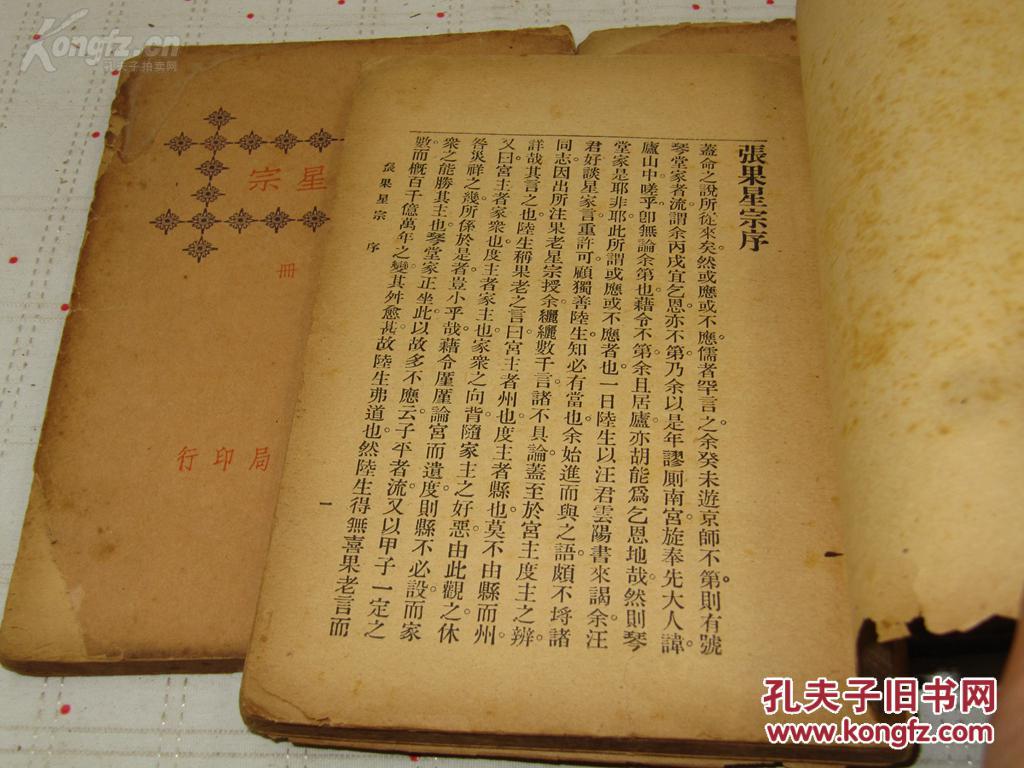 張果星宗序
蓋命之說所從來矣。然或應或不應。儒者罕言之。余癸未遊京師不第。則有號
琴堂家者流。謂余丙戌宜乞恩。亦不第。乃余以是年謬厠南宮。旋奉先大人諱。
廬山中。嗟乎。卽無論余第也。藉令不第。余且居廬。亦胡能爲乞恩地哉。然則琴
堂家是耶非耶。此所謂或應或不應者也。一日陸生以汪君雲陽書來謁余。汪
君好談星家言。重許可。顧獨善陸生。知必有當也。余始進而與之語。頗不埒諸
同志。因出所注果老星宗授余。纚纚數千言。諸不具論。蓋至於宮主度主之辨。
詳哉其言之也。陸生稱果老之言曰。宮主者州也。度主者縣也。莫不由縣而州。
又曰。宮主者家衆也。度主者家主也。家衆之向背。隨家主之好惡。由此觀之。休
咎災祥之幾。所係於是者。豈小乎哉。藉令厪厪論宮而遺度。則縣不必設。而家
衆之能勝其主也。琴堂家正坐此。以故多不應云。子平者流。又以甲子一定之
數。而概百千億萬年之變。其舛愈甚。故陸生弗道也。然陸生得無喜果老言而
張果星宗 序
一
星宗
冊
局印行
Kongfz.cn
孔夫子拍卖网
孔夫子旧书网
www.kongfz.com